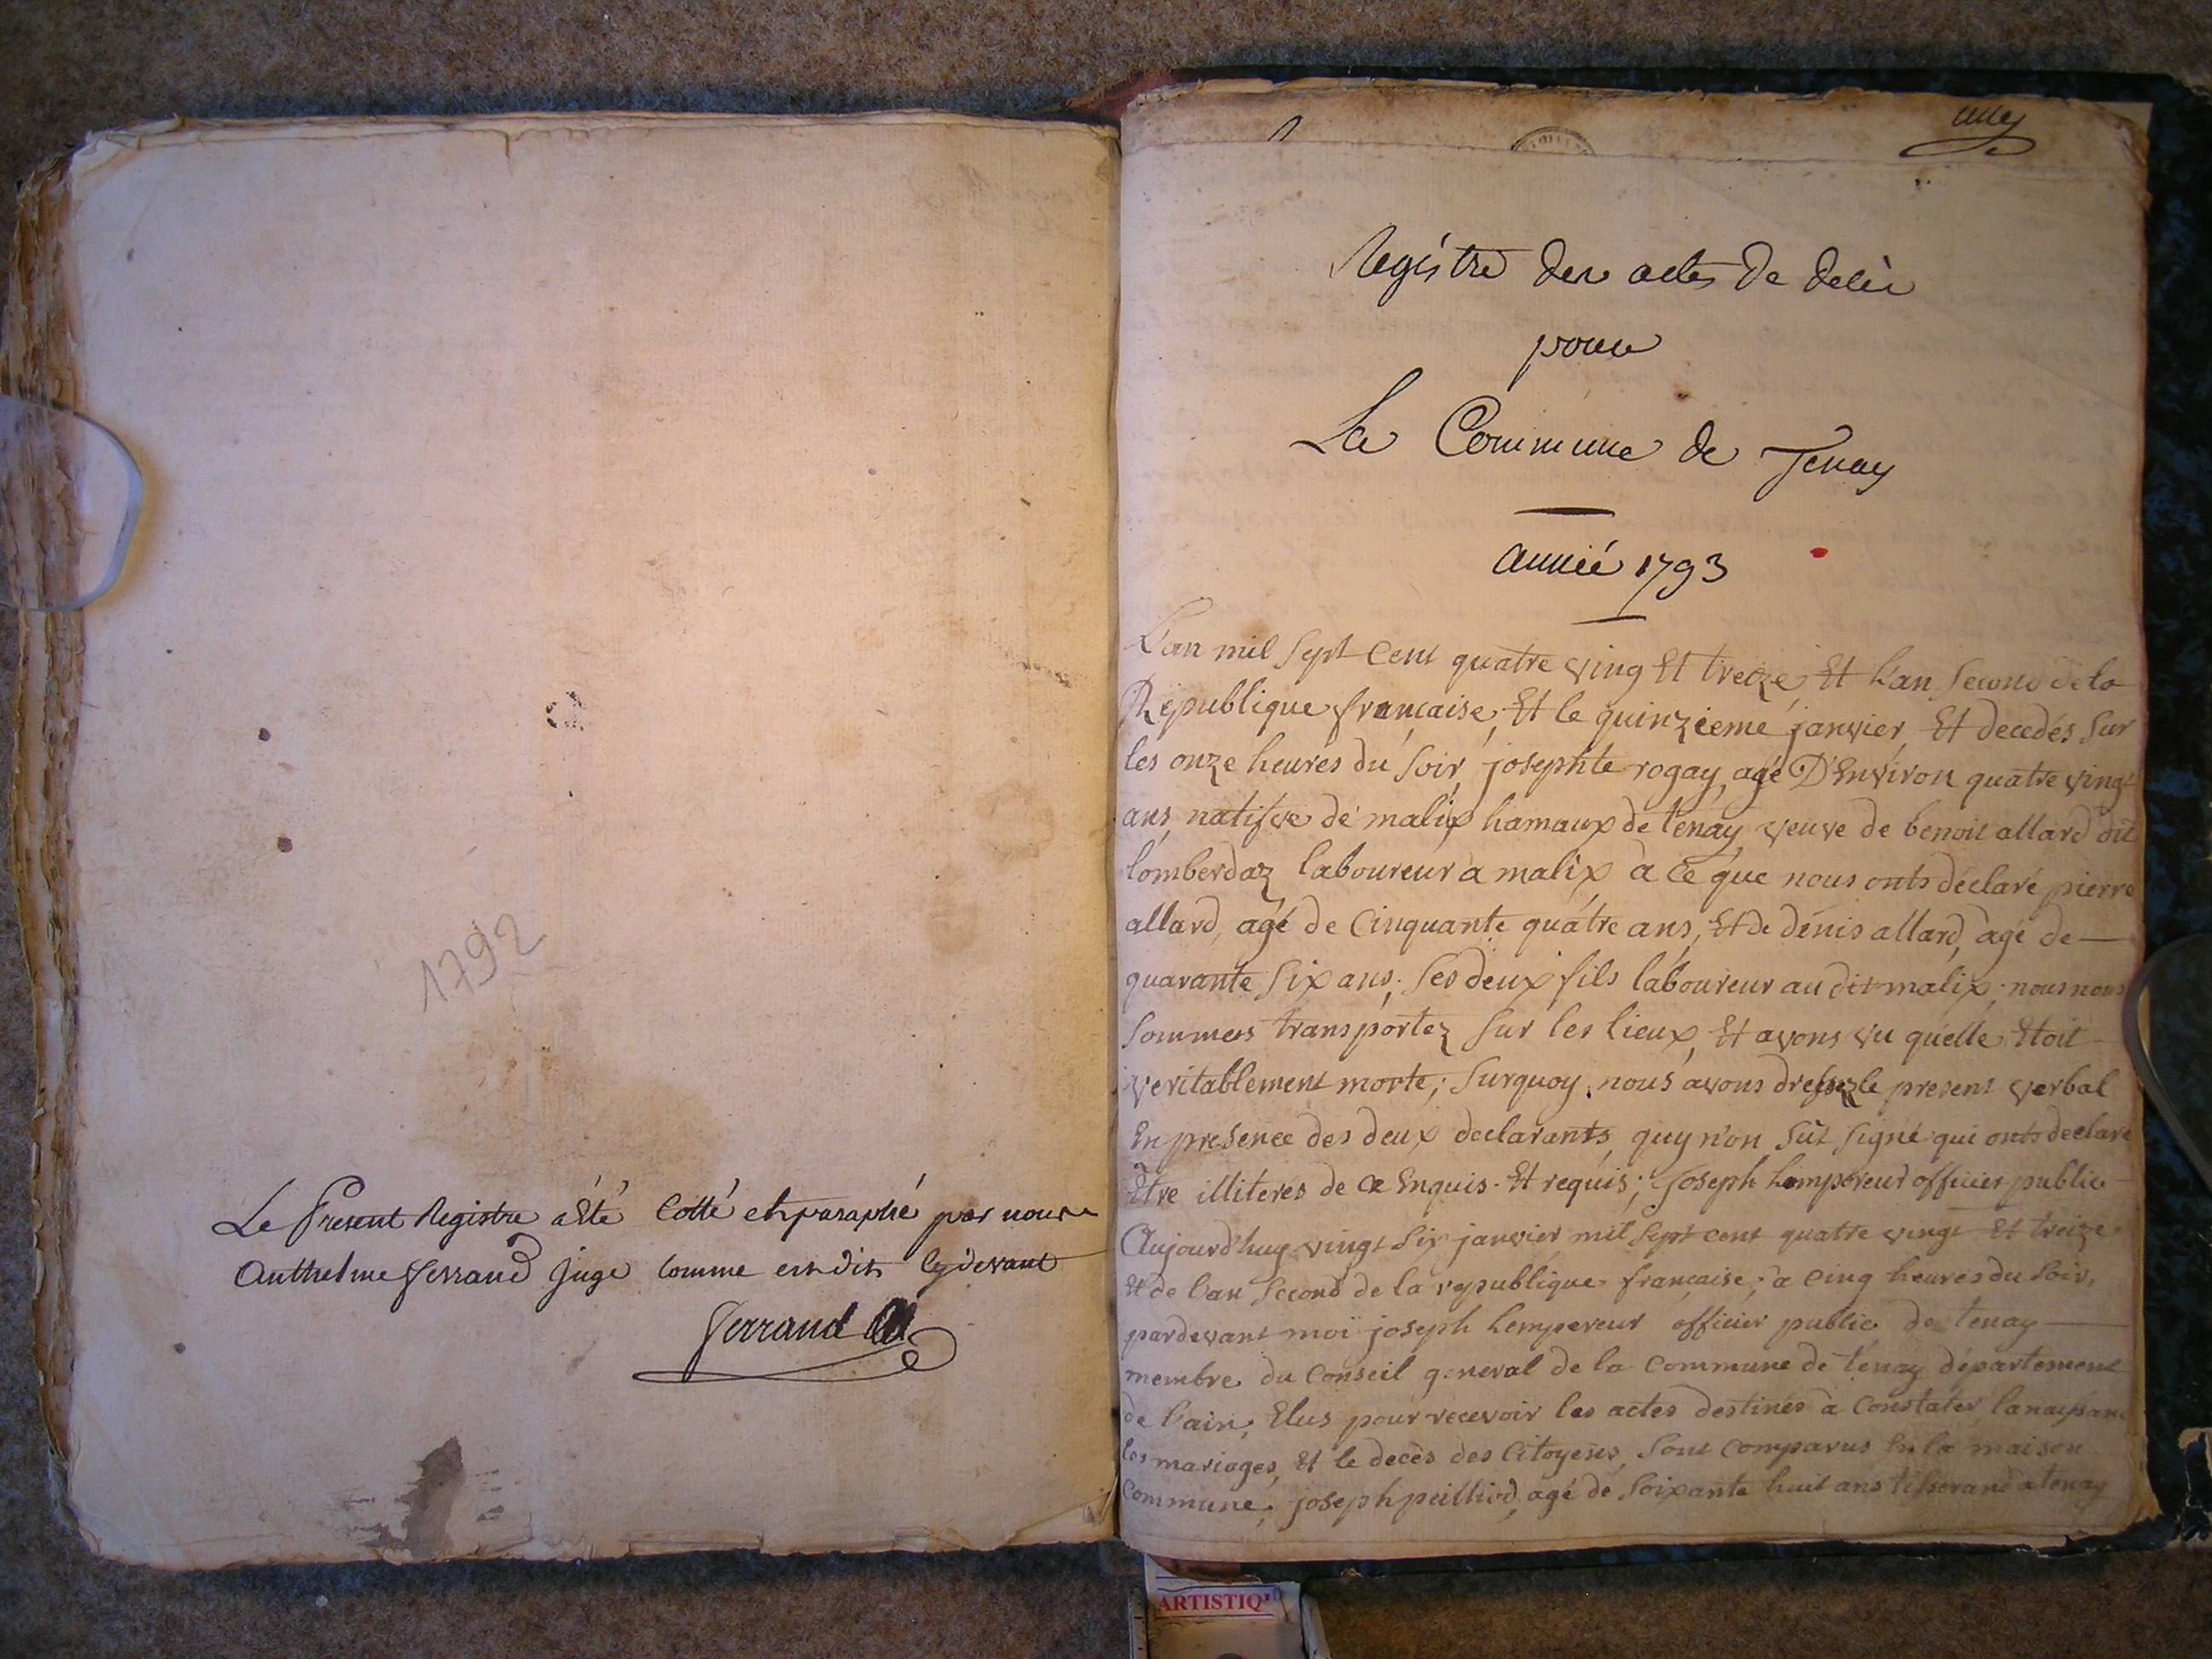 1792
Le Present Registre a Eté Cotté et paraphé par nous
Anthelme ferrand Juge Comme est dit cydevant
ferrand
Registre des actes de decès
pour
La Commune de Tenay
année 1793
L'an mil sept cent quatre ving Et treize, Et L'an second de la
République française, Et le quinzieme janvier, Et decedés sur
les onze heures du soir, josephte rogay, agé D'Environ quatre vingt
ans, natifve de malix hamaux de tenay, veuve de benoit allard dit
lomberdaz laboureur a malix à ce que nous onts déclaré pierre
allard, agé de Cinquante quatre ans, Et de denis allard, agé de
quarante six ans; ses deux fils laboureur au dit malix; nous nous
sommes transportez sur les lieux, Et avons vu quelle Etoit
veritablement morte; surquoy nous avons dressez le present verbal
En presence des deux declarants, quy n'on sût signé qui onts declaré
Être illiteres de ce Enquis Et requis; joseph Lempereur officier public
Aujourd'huy vingt six janvier mil sept cent quatre vingt Et treize
Et de l'an second de la republique française; à cinq heures du soir,
pardevant moi joseph Lempereur officier public de tenay
membre du Conseil general de la Commune de tenay département
de l'ain, Elus pour recevoir les actes destinés à Constater
les mariages, Et le decès des Citoyens, sont comparus En la maison
Commune; joseph peilliod, agé de soixante huit ans tisserand a tenay
ARTISTIQ